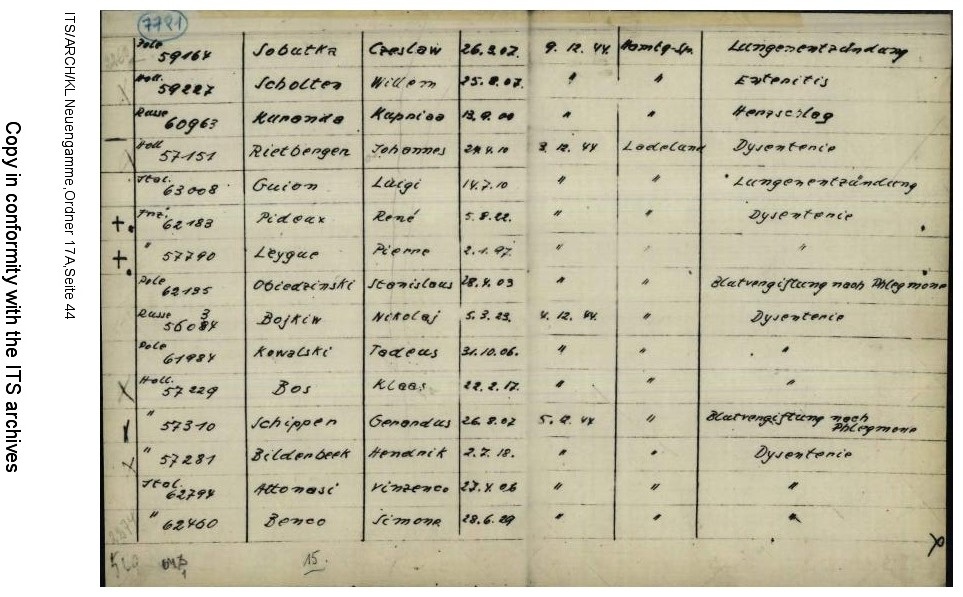 Copy in conformity with the ITS archives
ITS/ARCH/KL Neuengamme,Ordner 17A,Seite 44
7721
Pole 59164 Sobutka Czeslaw 26.3.07. 9.12.44. Hambg-Sp. Lungenentzündung
Holl. 59227 Scholten Willem 25.8.07. " " Enteritis
Russe 60963 Kuranda 13.9.00 " " Herzschlag
Holl 57151 Rietbergen Johannes 3.12.44 Ladelund Dysenterie
Ital. 63008 Guion Luigi 14.7.10 " " Lungenentzündung
+ Frz. 62183 Pideux René 5.8.22. " " Dysenterie
+ " 57790 Leygue Pierre 2.1.97. " " "
Pole 62195 Obiedzinski Stanislaus 28.4.03 " " Blutvergiftung nach Phlegmone
Russe 56084 3 Bojkiw Nikolaj 5.3.23. 4.12.44. " Dysenterie
Pole 61984 Kowalski Tadeus 31.10.06. " " "
Holl. 57229 Bos Klaas 22.2.17. " " "
" 57310 Schipper Gerardus 26.8.07 " Blutvergiftung nach
Phlegmone
" 57281 Bilderbeek Hendrik 2.7.18. " " Dysenterie
Ital. 62794 Attonasi Vinzenco " " "
" 62460 Benco Simone 28.6.29 " " "
15.